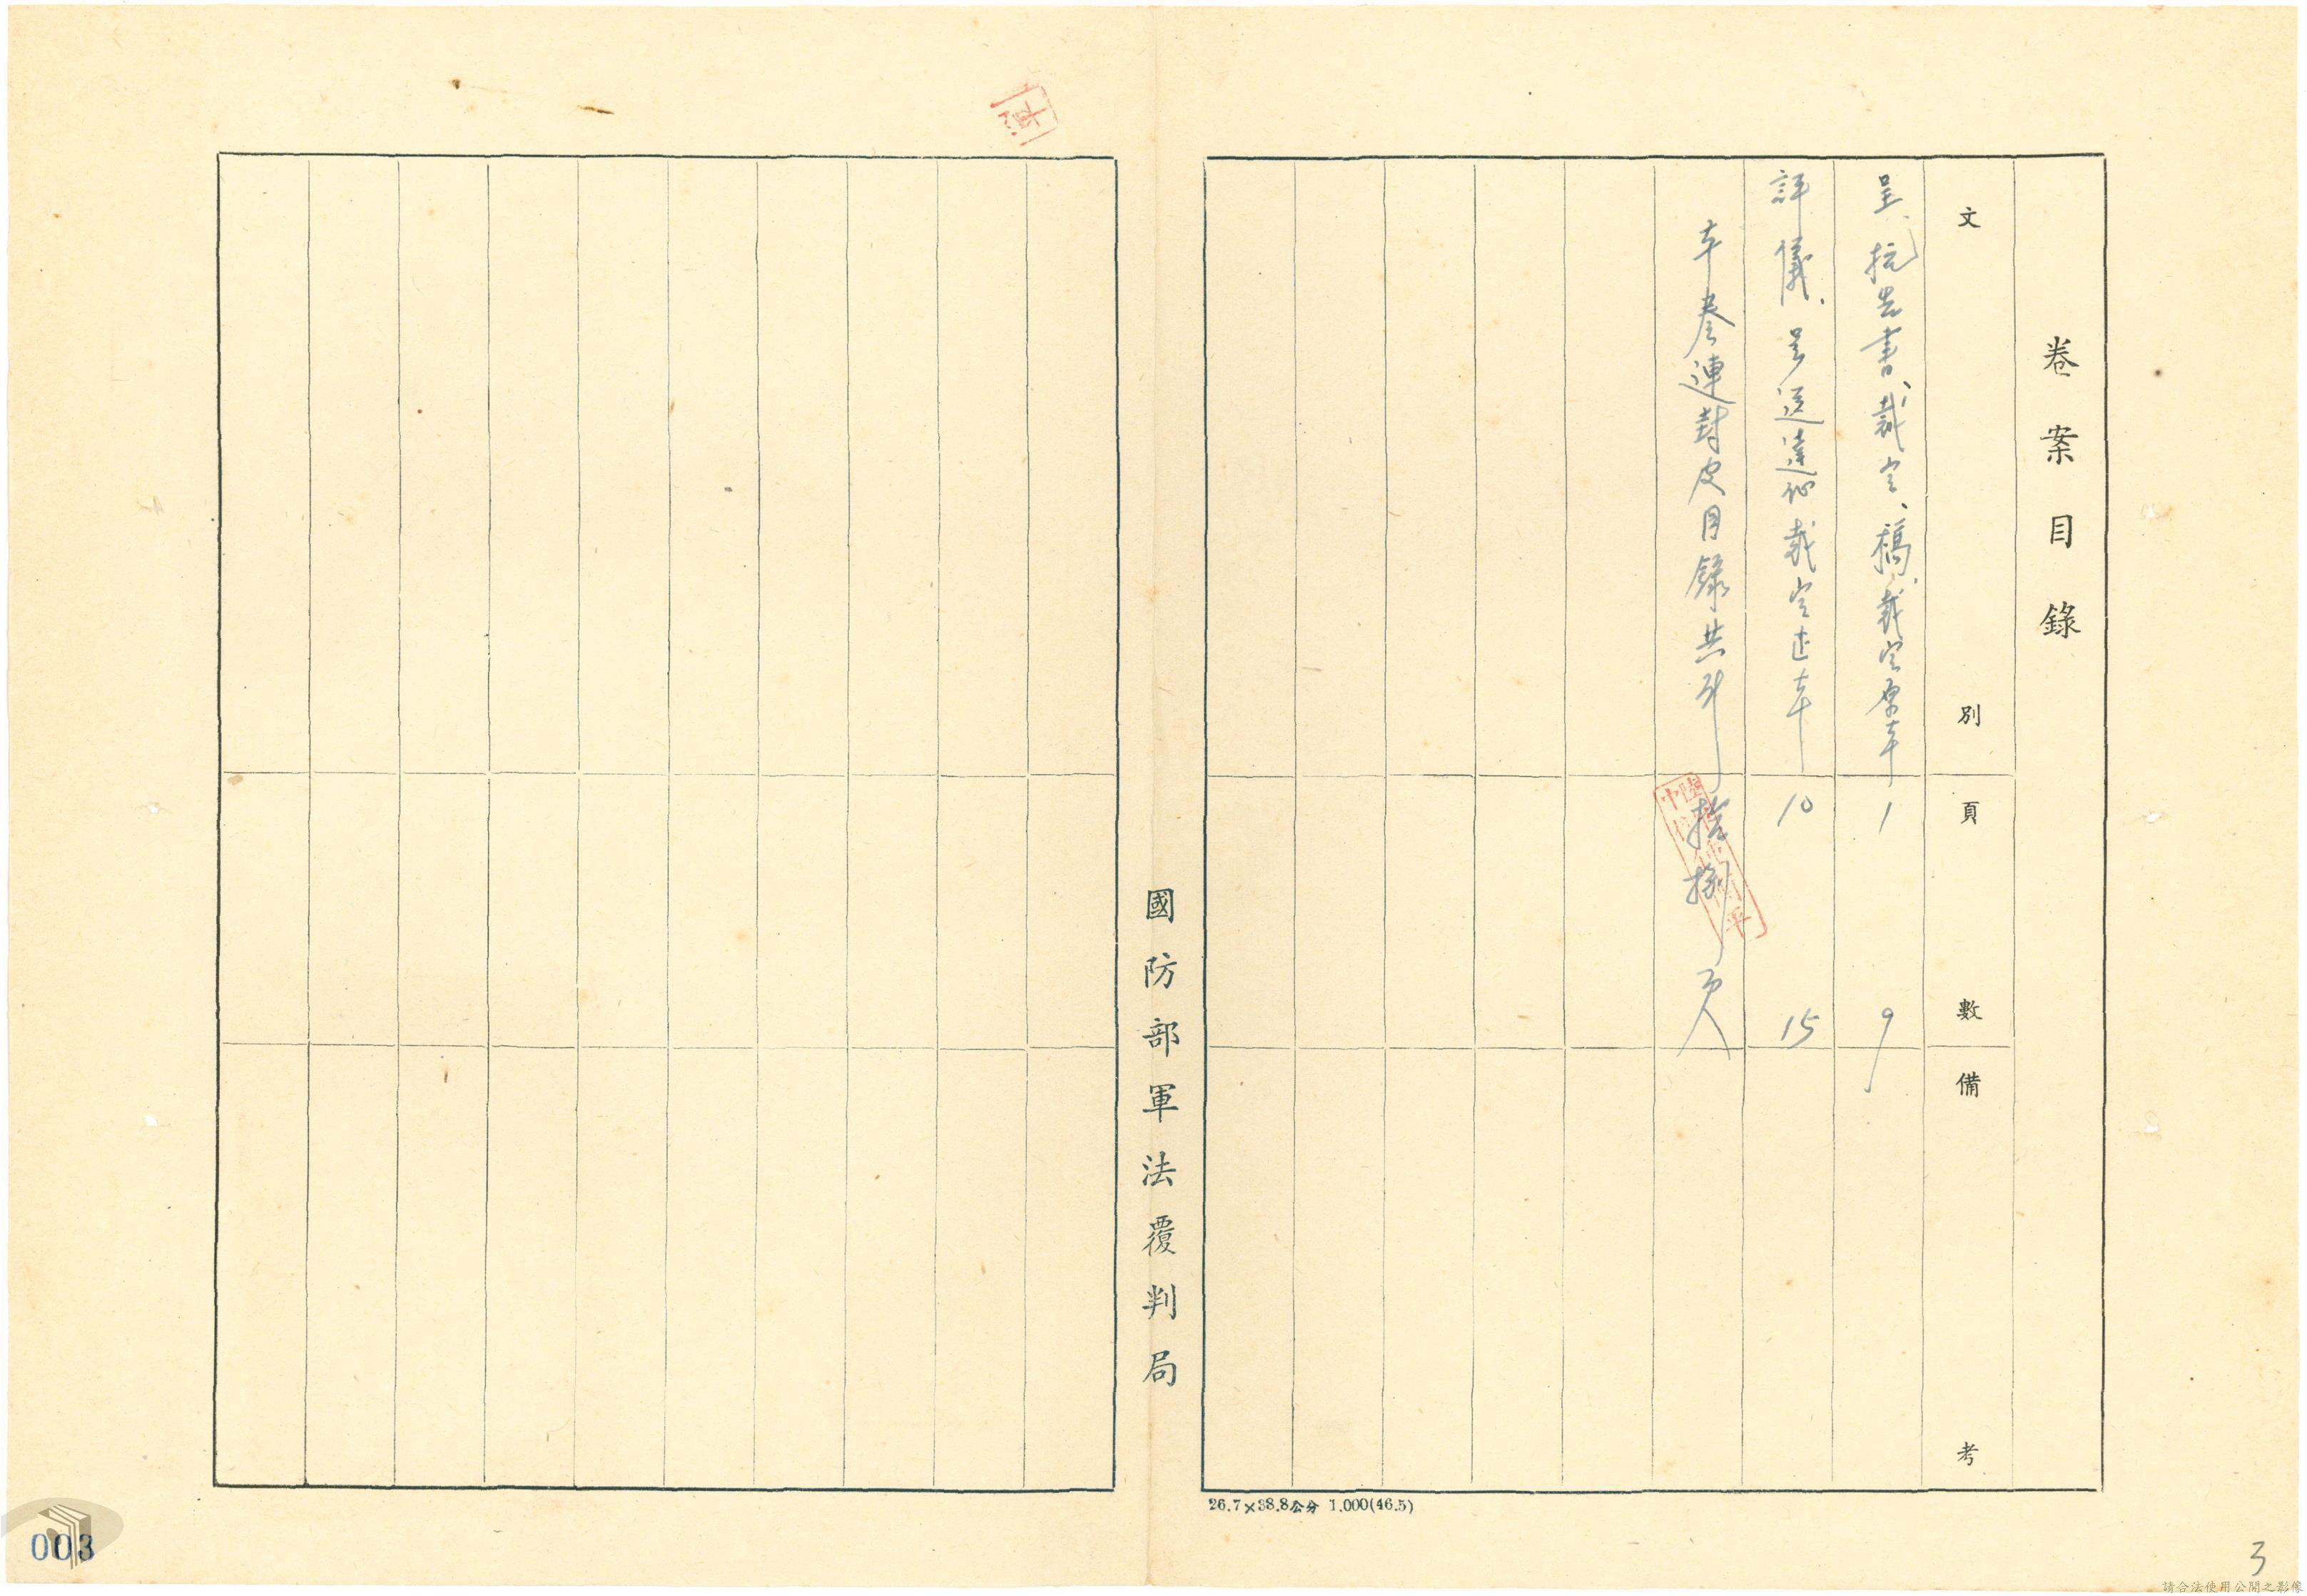 卷案目錄
文別 頁數 備考
呈、抗告書、裁定、稿、裁定原本 1 9
評儀、送達証裁定正本 10 15
本卷連封皮目錄共計拾捌頁
國防部軍法覆判局
26.7×38.8公分 1.000(46.5)
003
3
請合法使用公開之影像